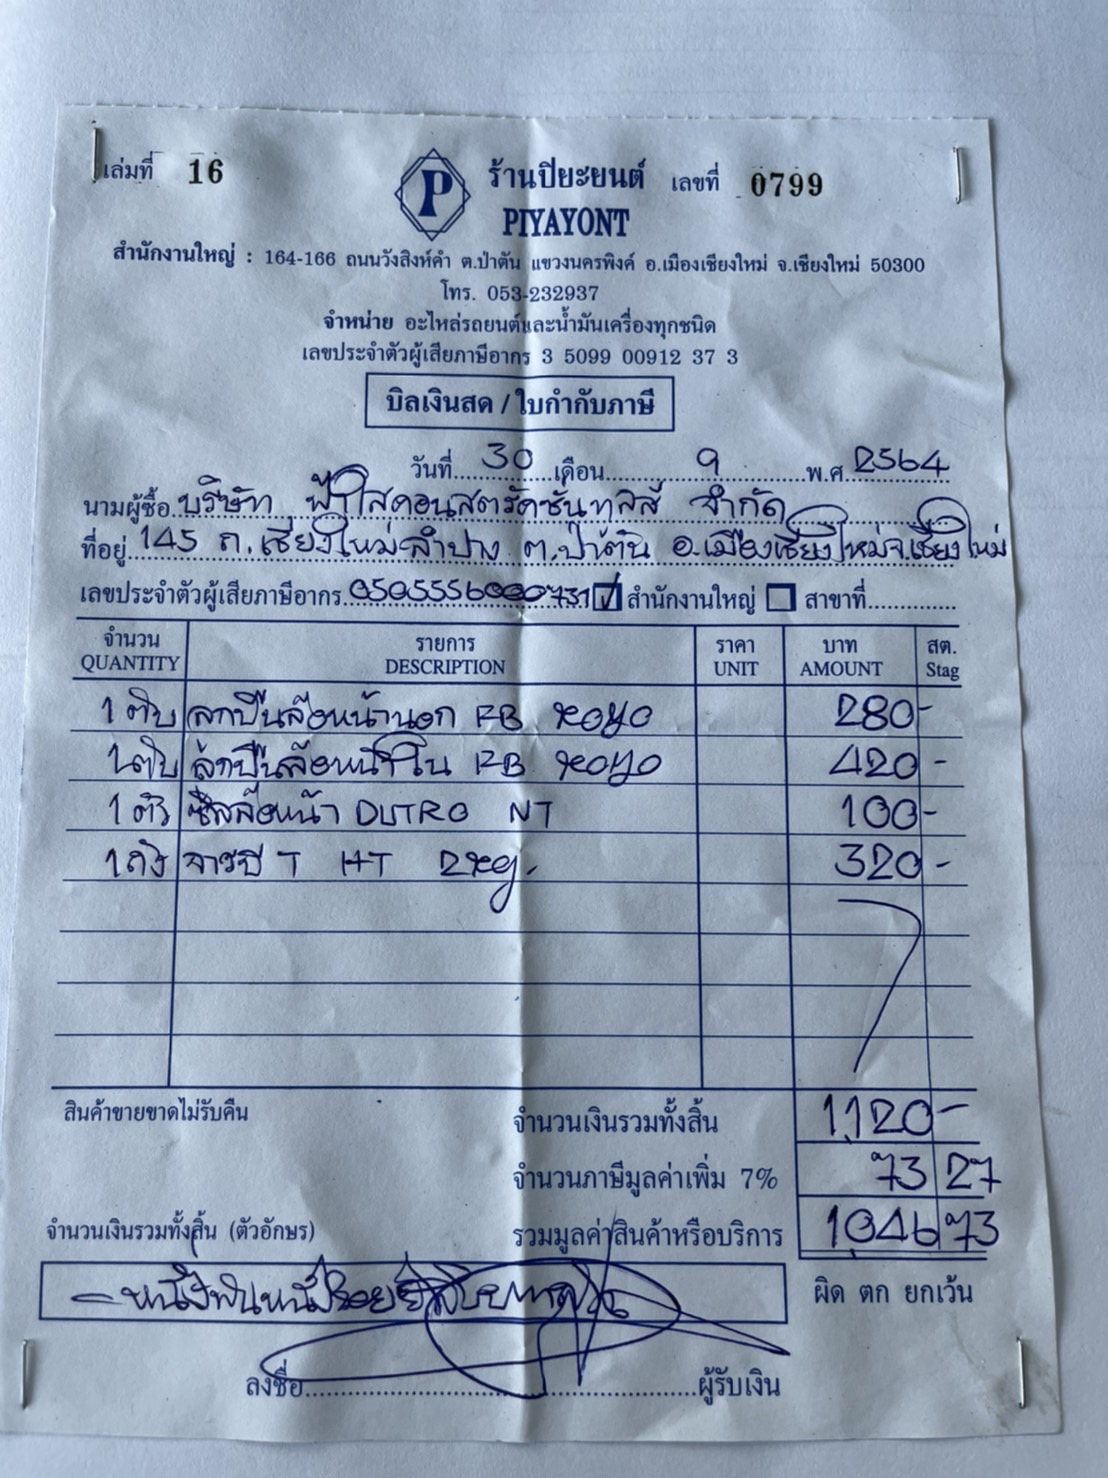 เล่มที่ 16 ร้านปิยะยนต์ เลขที่ 0799
P PIYAYONT
สำนักงานใหญ่ : 164-166 ถนนวังสิงห์คำ ต.ป่าตัน แขวงนครพิงค์ อ.เมืองเชียงใหม่ จ.เชียงใหม่ 50300
โทร. 053-232937
จำหน่าย อะไหล่รถยนต์และน้ำมันเครื่องทุกชนิด
เลขประจำตัวผู้เสียภาษีอากร 3 5099 00912 37 3
บิลเงินสด / ใบกำกับภาษี
วันที่ 30 เดือน 9 พ.ศ. 2564
นามผู้ซื้อ บริษัท ฟ้าใสคอนสตรัคชั่นทูลส์ จำกัด
ที่อยู่ 145 ถ.เชียงใหม่-ลำปาง ต.ป่าตัน อ.เมืองเชียงใหม่ จ.เชียงใหม่
เลขประจำตัวผู้เสียภาษีอากร 0505556000731 ☑ สำนักงานใหญ่ ☐ สาขาที่
จำนวน รายการ ราคา บาท สต.
QUANTITY DESCRIPTION UNIT AMOUNT Stag
1 ตับ ลูกปืนล้อหน้านอก FB KOYO 280 -
1 ตับ ลูกปืนล้อหน้าใน FB KOYO 420 -
1 ตัว ซีลล้อหน้า DUTRO NT 100 -
1 ถัง จารบี T HT 2kg. 320 -
สินค้าขายขาดไม่รับคืน จำนวนเงินรวมทั้งสิ้น 1,120 -
จำนวนภาษีมูลค่าเพิ่ม 7% 73 27
จำนวนเงินรวมทั้งสิ้น (ตัวอักษร) รวมมูลค่าสินค้าหรือบริการ 1,046 73
- หนึ่งพันหนึ่งร้อยยี่สิบบาทถ้วน ผิด ตก ยกเว้น
ลงชื่อ ผู้รับเงิน